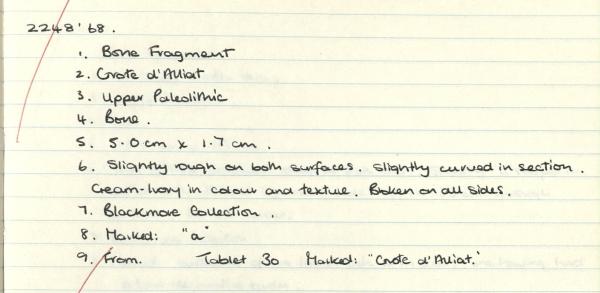 2248'68.
1. Bone Fragment
2. Crote d'Alliat
3. Upper Paleolithic
4. Bone.
5. 5.0cm x 1.7cm.
6. Slightly rough on both surfaces. Slightly curved in section.
Cream-Ivory in colour and texture. Broken on all sides.
7. Blackmore Collection.
8. Marked: "a"
9. From. Tablet 30 Marked: "Crote d'Alliat."